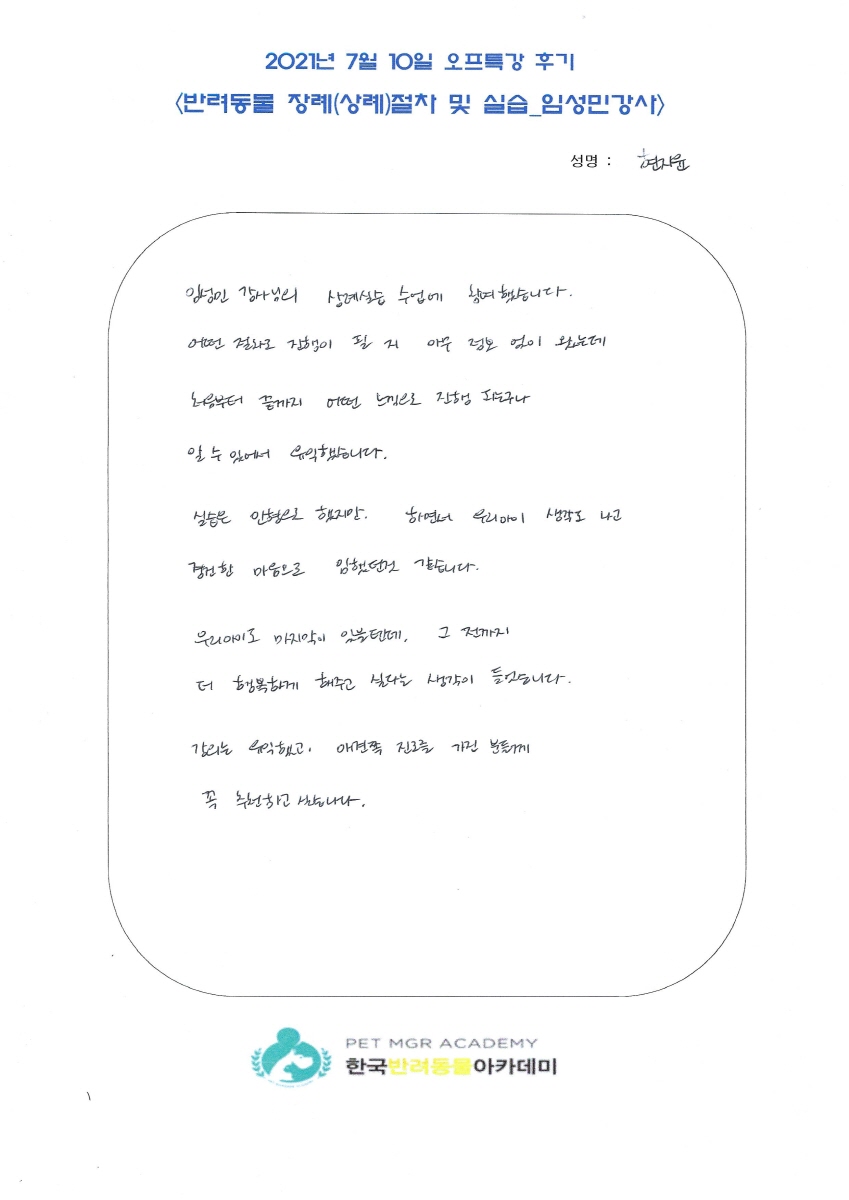 2021년 7월 10일 오프특강 후기
<반려동물 장례(상례)절차 및 실습_임성민강사>
성명 : 현지윤
임성민 강사님의 상례실습 수업에 참여했습니다.
어떤 절차로 진행이 될 지 아무 정보 없이 왔는데
처음부터 끝까지 어떤 느낌으로 진행 되는구나
알 수 있어서 유익했습니다.
실습은 인형으로 했지만. 하면서 우리아이 생각도 나고
경건한 마음으로 임했던것 같습니다.
우리아이도 마지막이 있을텐데, 그 전까지
더 행복하게 해주고 싶다는 생각이 들었습니다.
강의는 유익했고, 애견쪽 진로를 가진 분들에게
꼭 추천하고 싶습니다.
PET MGR ACADEMY
한국반려동물아카데미